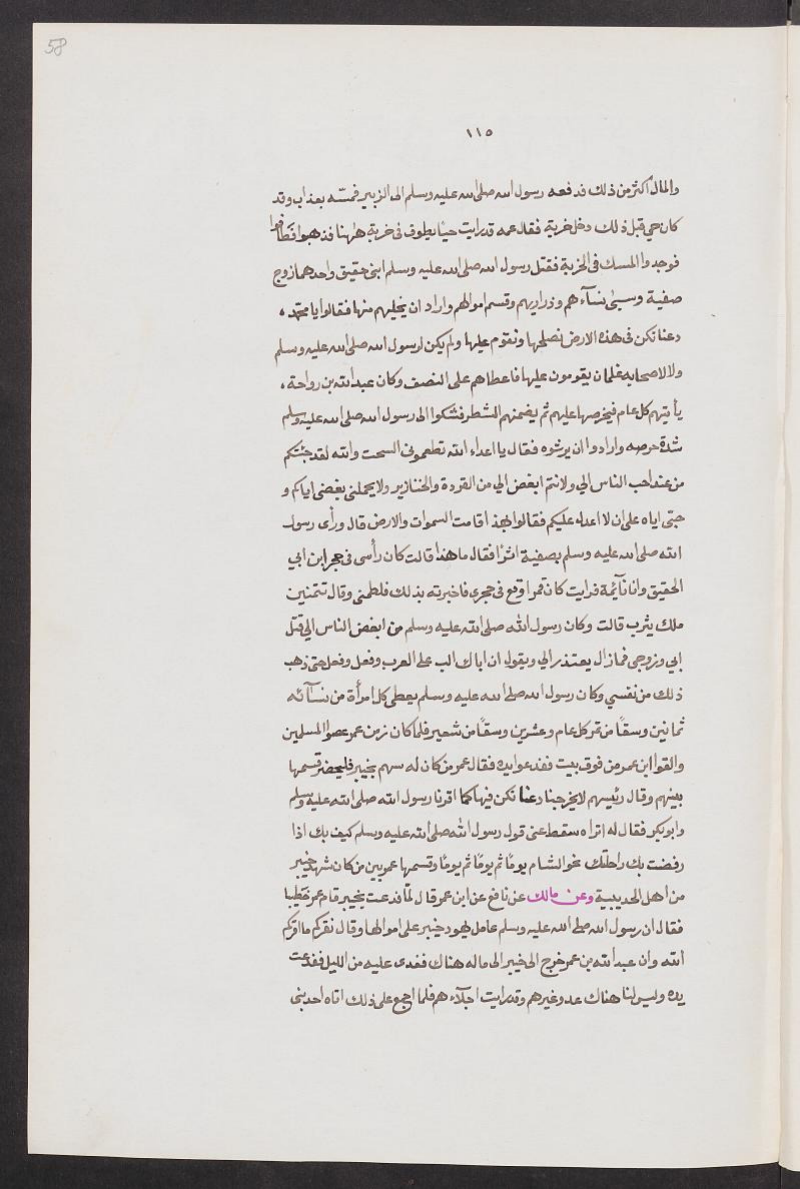 58
١١٥
والمال اكثر من ذلك فدفعه رسول الله صلى الله عليه وسلم الى الزبير فمسّه بعذاب وقد
كان حي قبل ذلك دخل خربة فقال عمه قد رايت حييا يطوف فى خربة هٰهنا فذهبوا فطافوا
فوجدوا المسك فى الخربة فقتل رسول الله صلى الله عليه وسلم ابنى حقيق واحدهما زوج
صفية وسبىٰ نسآءهم وذراريهم وقسم اموالهم واراد ان يجليهم منها فقالوا يا محمّد
دعنا نكن فى هذه الارض نصلحها ونقوم عليها ولم يكن لرسول الله صلى الله عليه وسلم
ولا لاصحابه غلمان يقومون عليها فاعطاهم على النصف وكان عبدالله بن رواحة
يأتيهم كل عام فيخرصها عليهم ثم يضمنهم الشطر فشكوا الى رسول الله صلى الله عليه وسلم
شدة حرصه وارادوا ان يرشوه فقال يا اعداء الله تطعمونى السحت والله لقد جئتكم
من عند احب الناس الي ولانتم ابغض الي من القردة والخنازير ولا يحملنى بغضى اياكم و
حبّى اياه على ان لا اعدل عليكم فقالوا بهذا قامت السموات والارض قال ورأى رسول
الله صلى الله عليه وسلم بصفية اثرًا فقال ما هذا قالت كان رأسى فى حجر ابن ابي
الحقيق وانا نآئمة فرايت كان قمرا وقع فى حجرى فاخبرته بذلك فلطمنى وقال تتمنين
ملك يثرب قالت وكان رسول الله صلى الله عليه وسلم من ابغض الناس الي قتل
ابي وزوجى فما زال يعتذر الي ويقول ان اباك الب على العرب وفعل وفعل حتى ذهب
ذلك من نفسي وكان رسول الله صلى الله عليه وسلم يعطى كل امرأة من نسآئه
ثمانين وسقًا من تمر كل عام وعشرين وسقًا من شعير فلما كان زمن عمر غصوا المسلمين
والقوا ابن عمر من فوق بيت ففدعوا يده فقال عمر من كان له سهم بخيبر فليحضر قسمها
بينهم وقال رئيسهم لا يخرجنا دعنا نكن فيها كما اقرنا رسول الله صلى الله عليه وسلم
وابو بكر فقال له اتراه سقط عنى قول رسول الله صلى الله عليه وسلم كيف بك اذا
رفضت بك راحلتك نحو الشام يومًا ثم يومًا ثم يومًا وقسمها عمر بين من كان شهد خيبر
من اهل الحديبية وعن مالك عن نافع عن ابن عمر قال لمّا فدعت بخيبر قام عمر خطيبا
فقال ان رسول الله صلى الله عليه وسلم عامل يهود خيبر على اموالها وقال نقركم ما اقركم
الله وان عبدالله بن عمر خرج الى خيبر الى ماله هناك فعدى عليه من الليل ففدعت
يده وليس لنا هناك عدو غيرهم وقد رايت اجلآءهم فلما اجمع على ذلك اتاه احد بنى